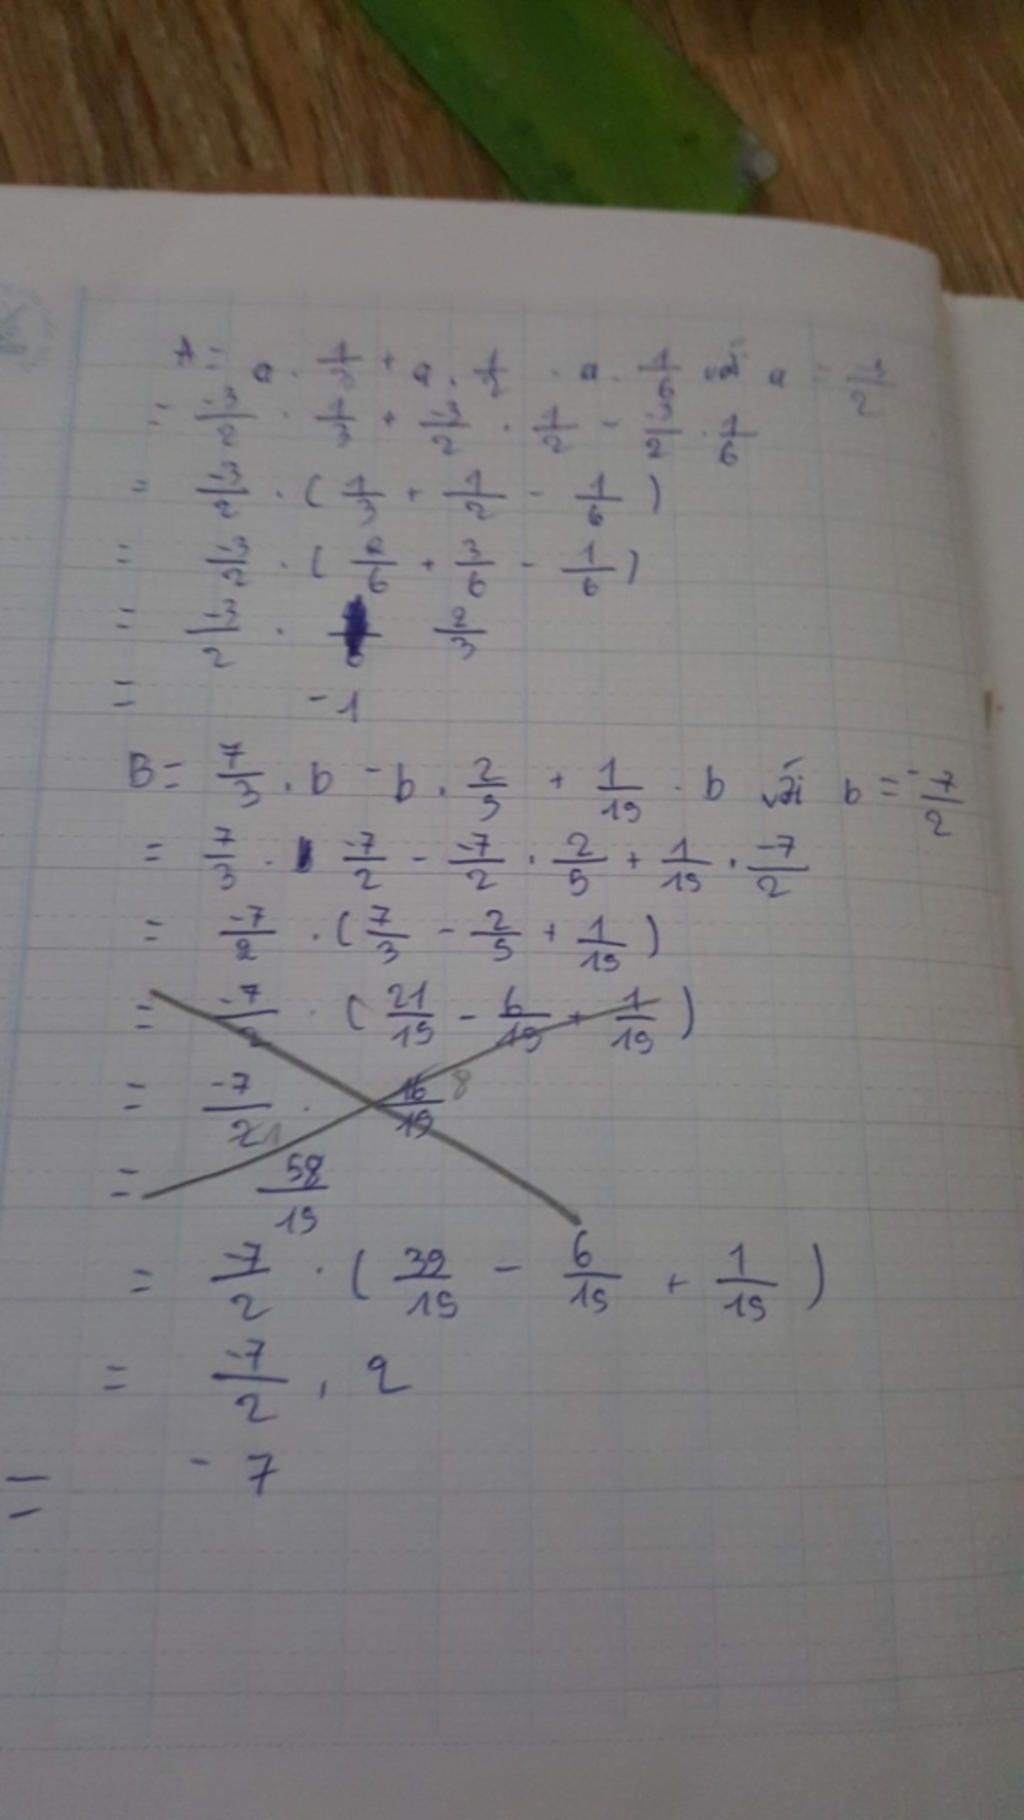 A = a . 1/3 + a . 1/2 - a . 1/6 với a = -3/2
= -3/2 . 1/3 + -3/2 . 1/2 - -3/2 . 1/6
= -3/2 . ( 1/3 + 1/2 - 1/6 )
= -3/2 . ( 2/6 + 3/6 - 1/6 )
= -3/2 . 2/3
= -1
B = 7/3 . b - b . 2/5 + 1/15 . b với b = -7/2
= 7/3 . -7/2 - -7/2 . 2/5 + 1/15 . -7/2
= -7/2 . ( 7/3 - 2/5 + 1/15 )
= -7/2 . ( 21/15 - 6/15 + 1/15 )
= -7/2 1 . 16/15 8
= 58/15
= -7/2 . ( 39/15 - 6/15 + 1/15 )
= -7/2 . 2
= - 7